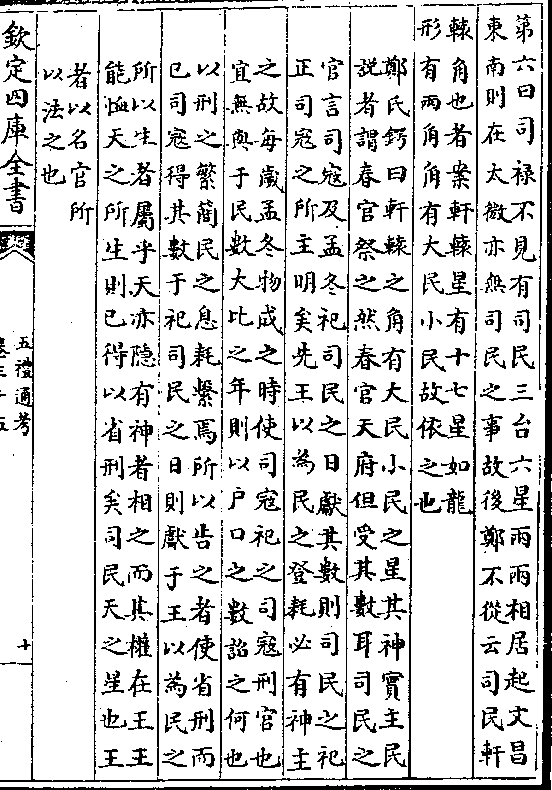 第六曰司禄不見有司民三台六星兩兩相居起文昌
東南則在太微亦無司民之事故後鄭不從云司民軒
轅角也者案軒轅星有十七星如龍
形有兩角角有大民小民故依之也
鄭氏鍔曰軒轅之角有大民小民之星其神實主民
説者謂春官祭之然春官天府但受其數耳司民之
官言司寇及孟冬祀司民之日獻其數則司民之祀
正司寇之所主明矣先王以為民之登耗必有神主
之故每歳孟冬物成之時使司寇祀之司寇刑官也
宜無與于民數大比之年則以户口之數詔之何也
以刑之繁簡民之息耗繫焉所以告之者使省刑而
已司寇得其數于祀司民之日則獻于王以為民之
所以生者屬乎天亦隱有神者相之而其權在王王
能恤天之所生則已得以省刑矣司民天之星也王
者以名官所
以法之也
欽定四庫全書
五禮通考
卷三十五
十